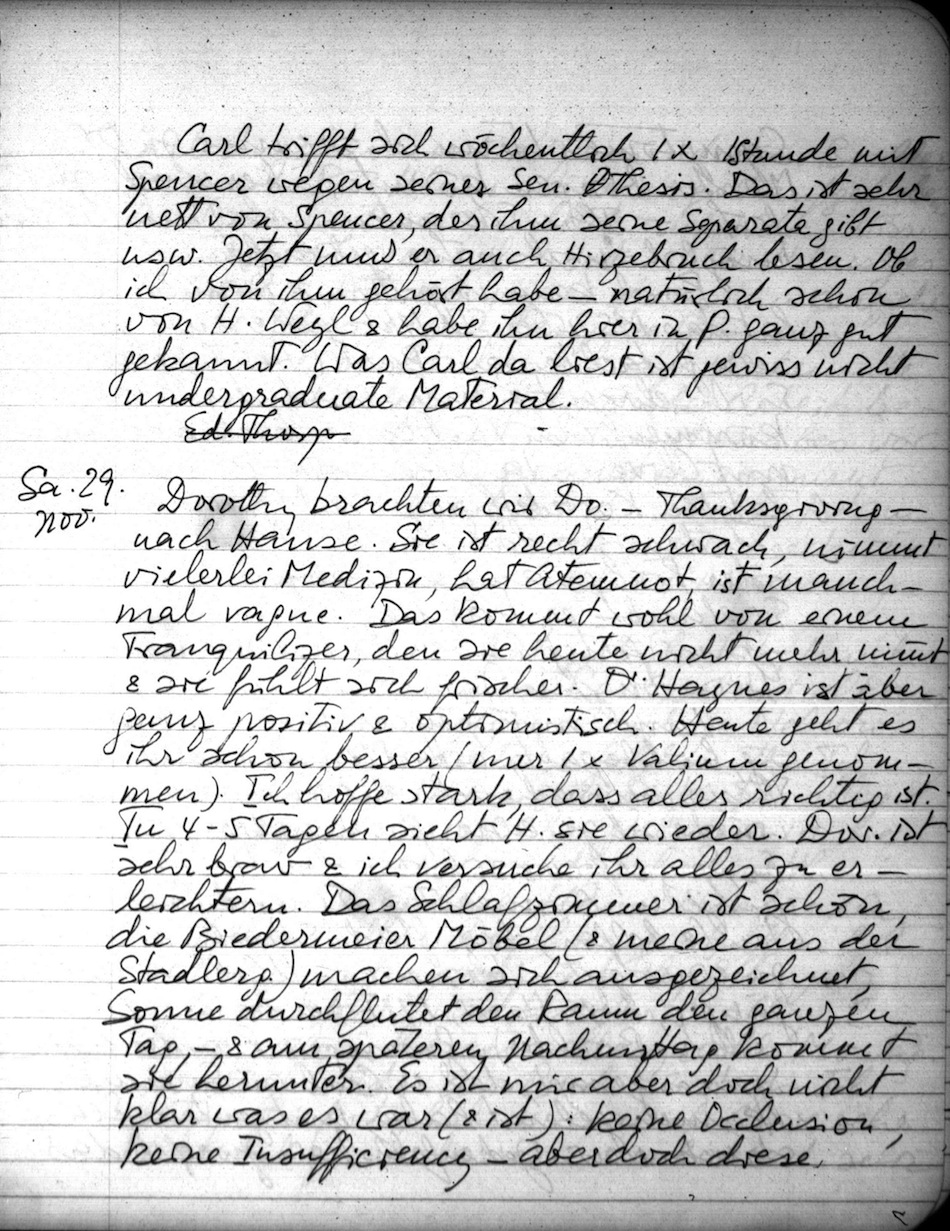 Carl trifft sich wöchentlich 1x 1 Stunde mit
Spencer wegen seiner Sen. Thesis. Das ist sehr
nett von Spencer, der ihm seine Separata gibt
usw. Jetzt muss er auch Hirzebruch lesen. Ob
ich von ihm gehört habe – natürlich schon
von H. Weyl & habe ihn hier in P. ganz gut
gekannt. Was Carl da liest ist gewiss nicht
undergraduate Material.
Ed. Thorp
Sa. 29.
Nov.
Dorothy brachten wir Do. – Thanksgiving –
nach Hause. Sie ist recht schwach, nimmt
vielerlei Medizin, hat Atemnot, ist manch-
mal vague. Das kommt wohl von einem
Tranquilizer, den sie heute nicht mehr nimt
& sie fühlt sich frischer. Dr. Haynes ist aber
ganz positiv & optimistisch. Heute geht es
ihr schon besser (nur 1x Valium genom-
men). Ich hoffe stark, dass alles richtig ist.
In 4-5 Tagen sieht H. sie wieder. Dor. ist
sehr brav & ich versuche ihr alles zu er-
leichtern. Das Schlafzimmer ist schön,
die Biedermeier Möbel (& meine aus der
Stadlerg.) machen sich ausgezeichnet,
Sonne durchflutet den Raum den ganzen
Tag, – & am späteren Nachmittag kommt
sie herunter. Es ist mir aber doch nicht
klar was es war (& ist): keine Occlusion,
keine Insufficiency – aber doch diese